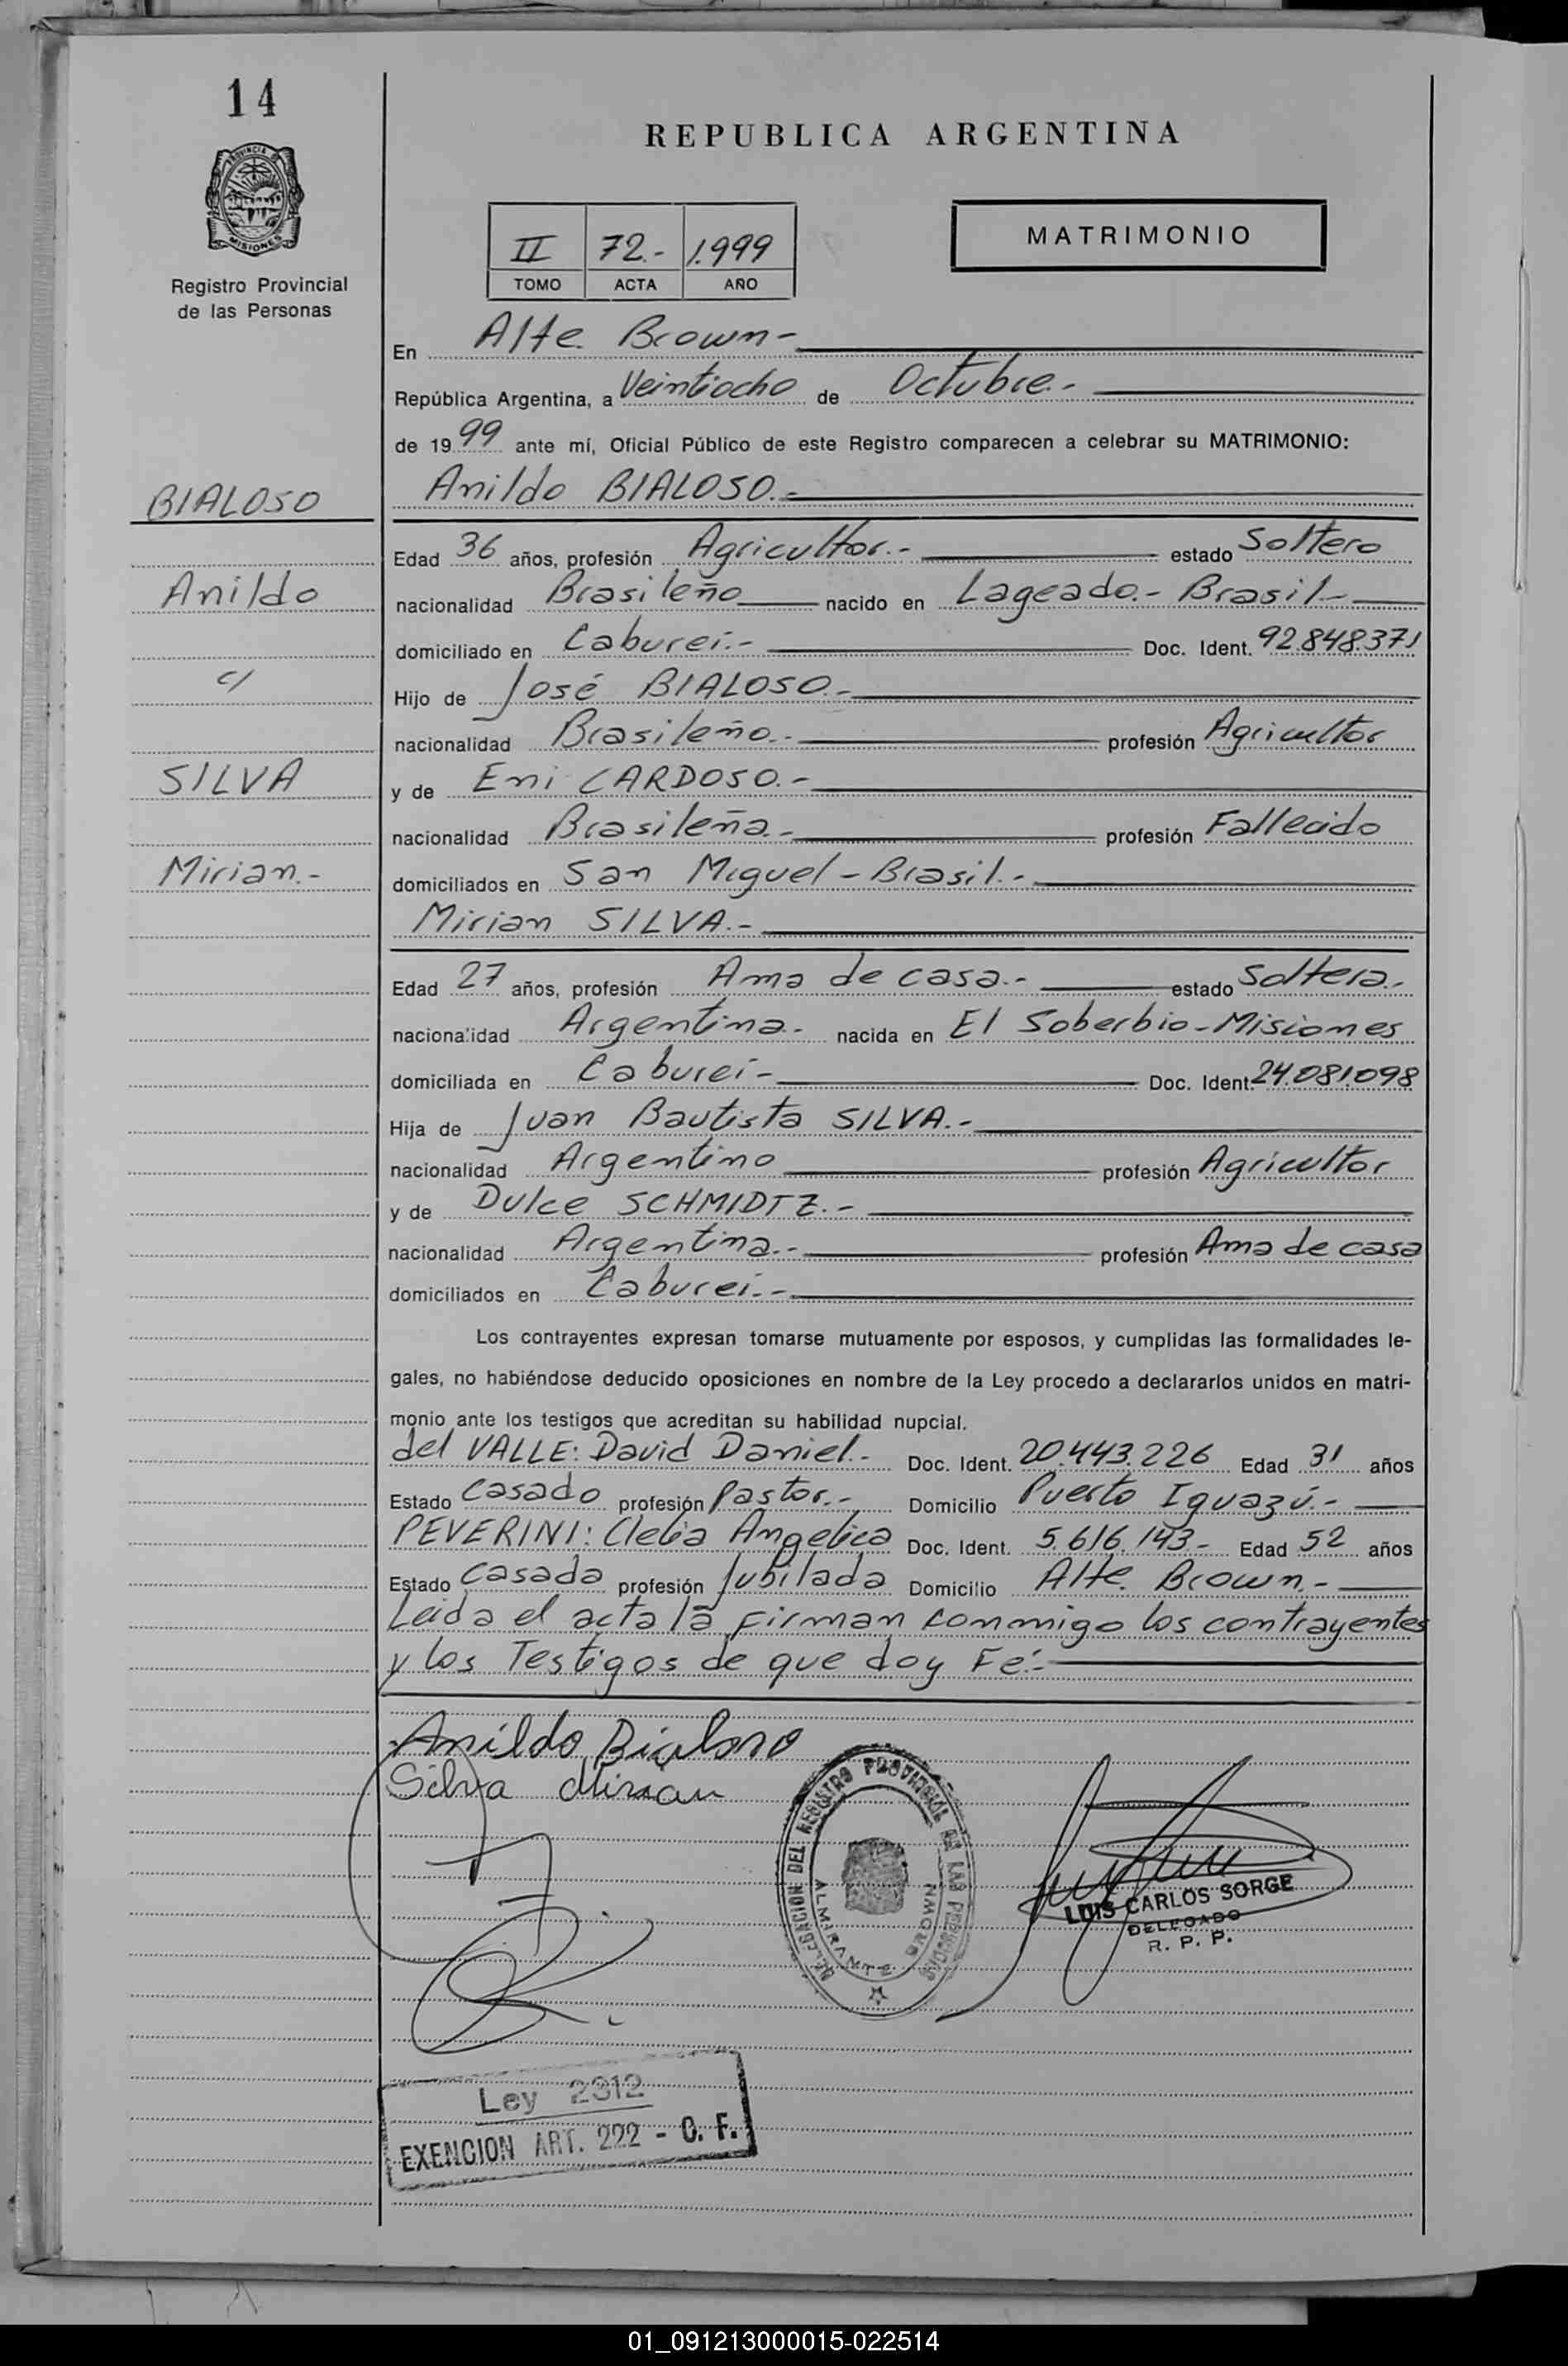 14
PROVINCIA DE
MISIONES
Registro Provincial
de las Personas
REPUBLICA ARGENTINA
II 72.- 1.999
TOMO ACTA AÑO
MATRIMONIO
En Alte. Brown-
República Argentina, a Veintiocho de Octubre.-
de 1999 ante mí, Oficial Público de este Registro comparecen a celebrar su MATRIMONIO:
BIALOSO
Anildo
c/
SILVA
Mirian.-
Anildo BIALOSO.-
Edad 36 años, profesión Agricultor.- estado Soltero
nacionalidad Brasileño nacido en Lageado.- Brasil-
domiciliado en Caburei.- Doc. Ident. 92.848.371
Hijo de José BIALOSO.-
nacionalidad Brasileño.- profesión Agricultor
y de Eni CARDOSO.-
nacionalidad Brasileña.- profesión Fallecido
domiciliados en San Miguel - Brasil.-
Mirian SILVA.-
Edad 27 años, profesión Ama de casa.- estado Soltera.-
nacionalidad Argentina.- nacida en El Soberbio-Misiones
domiciliada en Caburei- Doc. Ident. 24.081.098
Hija de Juan Bautista SILVA.-
nacionalidad Argentino profesión Agricultor
y de Dulce SCHMIDTZ.-
nacionalidad Argentina.- profesión Ama de casa
domiciliados en Caburei.-
Los contrayentes expresan tomarse mutuamente por esposos, y cumplidas las formalidades le-
gales, no habiéndose deducido oposiciones en nombre de la Ley procedo a declararlos unidos en matri-
monio ante los testigos que acreditan su habilidad nupcial.
del VALLE: David Daniel.- Doc. Ident. 20.443.226 Edad 31 años
Estado Casado profesión Pastor.- Domicilio Puerto Iguazú.-
PEVERINI: Clelia Angelica Doc. Ident. 5.616.143- Edad 52 años
Estado Casada profesión Jubilada Domicilio Alte. Brown.-
Leida el acta la firman conmigo los contrayentes
y los Testigos de que doy Fé.-
Anildo Bialoso
Silva Mirian
DELEGACION DEL REGISTRO PROVINCIAL DE LAS PERSONAS
ALMIRANTE BROWN
LUIS CARLOS SORGE
DELEGADO
R. P. P.
Ley 2312
EXENCION ART. 222 - C. F.
01_091213000015-022514